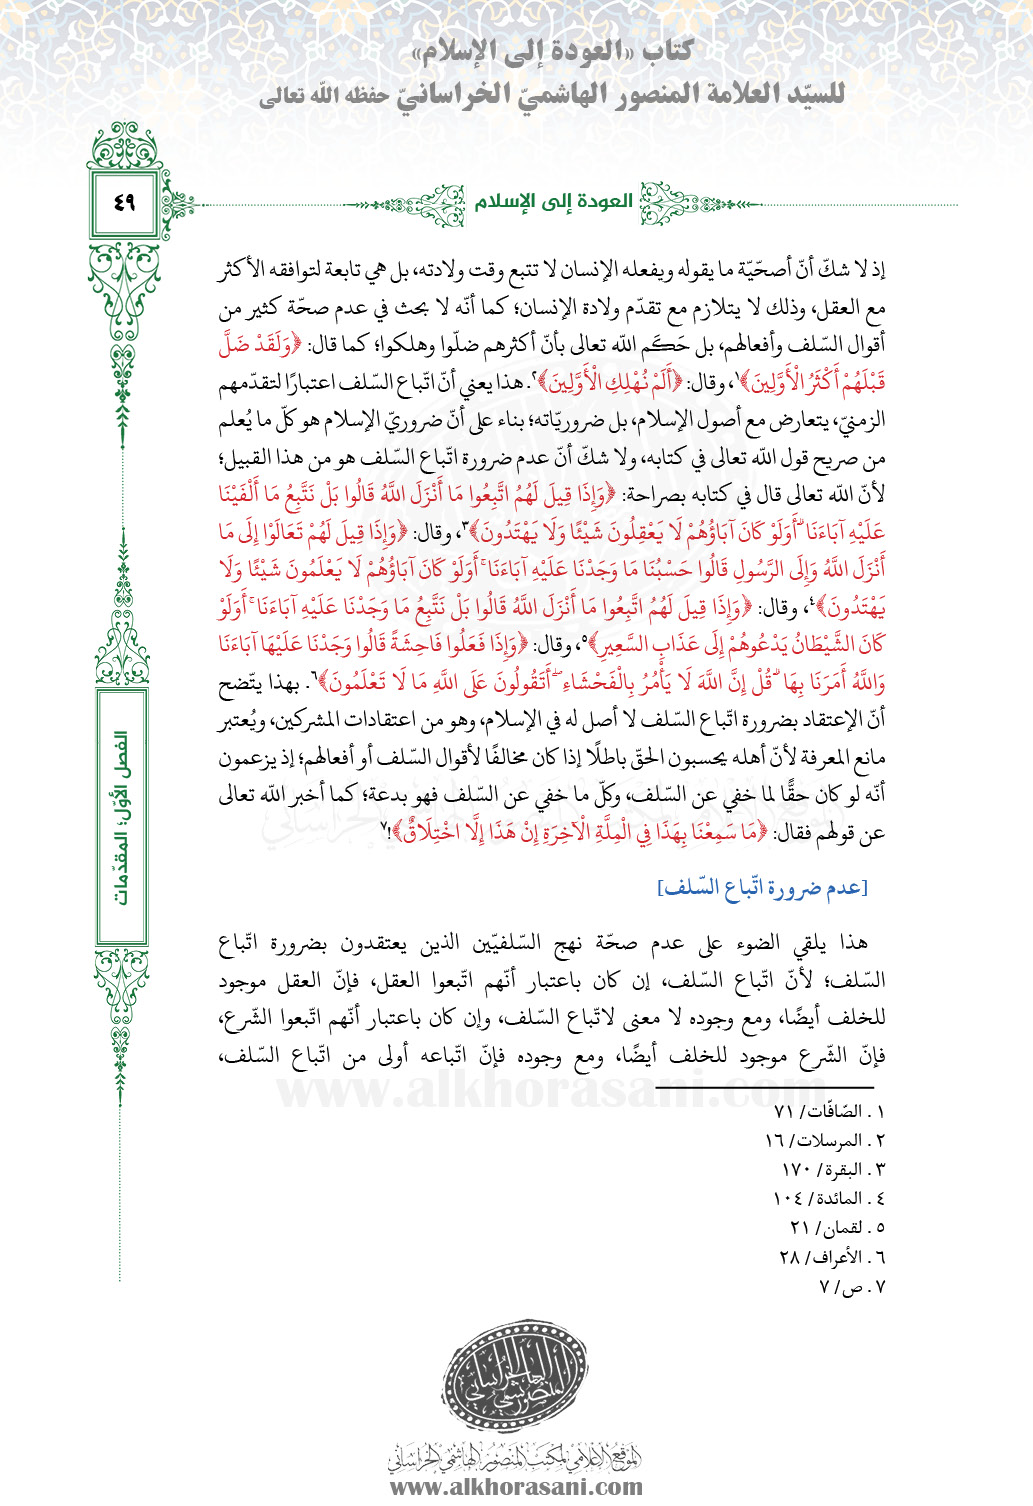 كتاب «العودة إلى الإسلام»
للسيّد العلامة المنصور الهاشميّ الخراسانيّ حفظه الله تعالى
٤٩
العودة إلى الإسلام
إذ لا شكّ أنّ أصحّيّة ما يقوله ويفعله الإنسان لا تتبع وقت ولادته، بل هي تابعة لتوافقه الأكثر
مع العقل، وذلك لا يتلازم مع تقدّم ولادة الإنسان؛ كما أنّه لا بحث في عدم صحّة كثير من
أقوال السّلف وأفعالهم، بل حَكَم الله تعالى بأنّ أكثرهم ضلّوا وهلكوا؛ كما قال: ﴿وَلَقَدْ ضَلَّ
قَبْلَهُمْ أَكْثَرُ الْأَوَّلِينَ﴾١، وقال: ﴿أَلَمْ نُهْلِكِ الْأَوَّلِينَ﴾٢. هذا يعني أنّ اتّباع السّلف اعتبارًا لتقدّمهم
الزمنيّ، يتعارض مع أصول الإسلام، بل ضروريّاته؛ بناء على أنّ ضروريّ الإسلام هو كلّ ما يُعلم
من صريح قول الله تعالى في كتابه، ولا شكّ أنّ عدم ضرورة اتّباع السّلف هو من هذا القبيل؛
لأنّ الله تعالى قال في كتابه بصراحة: ﴿وَإِذَا قِيلَ لَهُمُ اتَّبِعُوا مَا أَنْزَلَ اللَّهُ قَالُوا بَلْ نَتَّبِعُ مَا أَلْفَيْنَا
عَلَيْهِ آبَاءَنَا ۗ أَوَلَوْ كَانَ آبَاؤُهُمْ لَا يَعْقِلُونَ شَيْئًا وَلَا يَهْتَدُونَ﴾٣، وقال: ﴿وَإِذَا قِيلَ لَهُمْ تَعَالَوْا إِلَى مَا
أَنْزَلَ اللَّهُ وَإِلَى الرَّسُولِ قَالُوا حَسْبُنَا مَا وَجَدْنَا عَلَيْهِ آبَاءَنَا ۚ أَوَلَوْ كَانَ آبَاؤُهُمْ لَا يَعْلَمُونَ شَيْئًا وَلَا
يَهْتَدُونَ﴾٤، وقال: ﴿وَإِذَا قِيلَ لَهُمُ اتَّبِعُوا مَا أَنْزَلَ اللَّهُ قَالُوا بَلْ نَتَّبِعُ مَا وَجَدْنَا عَلَيْهِ آبَاءَنَا ۚ أَوَلَوْ
كَانَ الشَّيْطَانُ يَدْعُوهُمْ إِلَى عَذَابِ السَّعِيرِ﴾٥، وقال: ﴿وَإِذَا فَعَلُوا فَاحِشَةً قَالُوا وَجَدْنَا عَلَيْهَا آبَاءَنَا
وَاللَّهُ أَمَرَنَا بِهَا ۗ قُلْ إِنَّ اللَّهَ لَا يَأْمُرُ بِالْفَحْشَاءِ ۖ أَتَقُولُونَ عَلَى اللَّهِ مَا لَا تَعْلَمُونَ﴾٦. بهذا يتّضح
أنّ الإعتقاد بضرورة اتّباع السّلف لا أصل له في الإسلام، وهو من اعتقادات المشركين، ويُعتبر
مانع المعرفة لأنّ أهله يحسبون الحقّ باطلًا إذا كان مخالفًا لأقوال السّلف أو أفعالهم؛ إذ يزعمون
أنّه لو كان حقًّا لما خفي عن السّلف، وكلّ ما خفي عن السّلف فهو بدعة؛ كما أخبر الله تعالى
عن قولهم فقال: ﴿مَا سَمِعْنَا بِهَذَا فِي الْمِلَّةِ الْآخِرَةِ إِنْ هَذَا إِلَّا اخْتِلَاقٌ﴾!٧
[عدم ضرورة اتّباع السّلف]
هذا يلقي الضوء على عدم صحّة نهج السّلفيّين الذين يعتقدون بضرورة اتّباع
السّلف؛ لأنّ اتّباع السّلف، إن كان باعتبار أنّهم اتّبعوا العقل، فإنّ العقل موجود
للخلف أيضًا، ومع وجوده لا معنى لاتّباع السّلف، وإن كان باعتبار أنّهم اتّبعوا الشّرع،
فإنّ الشّرع موجود للخلف أيضًا، ومع وجوده فإنّ اتّباعه أولى من اتّباع السّلف،
الفصل الأوّل؛ المقدّمات
١ . الصّافّات/ ٧١
٢ . المرسلات/ ١٦
٣ . البقرة/ ١٧٠
٤ . المائدة/ ١٠٤
٥ . لقمان/ ٢١
٦ . الأعراف/ ٢٨
٧ . ص/ ٧
المنصور الهاشمي الخراساني
الموقع الإعلامي لمكتب المنصور الهاشمي الخراساني
www.alkhorasani.com
www.alkhorasani.com